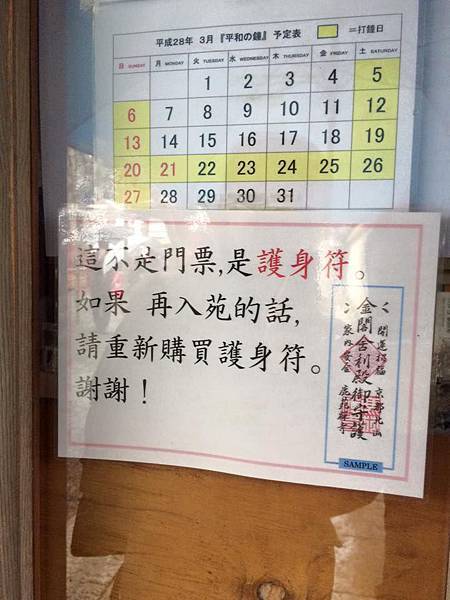 平成28年 3月『平和の鐘』予定表 =打鐘日
日 SUNDAY 月 MONDAY 火 TUESDAY 水 WEDNESDAY 木 THURSDAY 金 FRIDAY 土 SATURDAY
1 2 3 4 5
6 7 8 9 10 11 12
13 14 15 16 17 18 19
20 21 22 23 24 25 26
27 28 29 30 31
這不是門票,是護身符。
如果 再入苑的話,
請重新購買護身符。
謝謝!
開運招福 京都北山
金閣舎利殿御守護
家内安全 鹿苑禅寺
SAMPLE